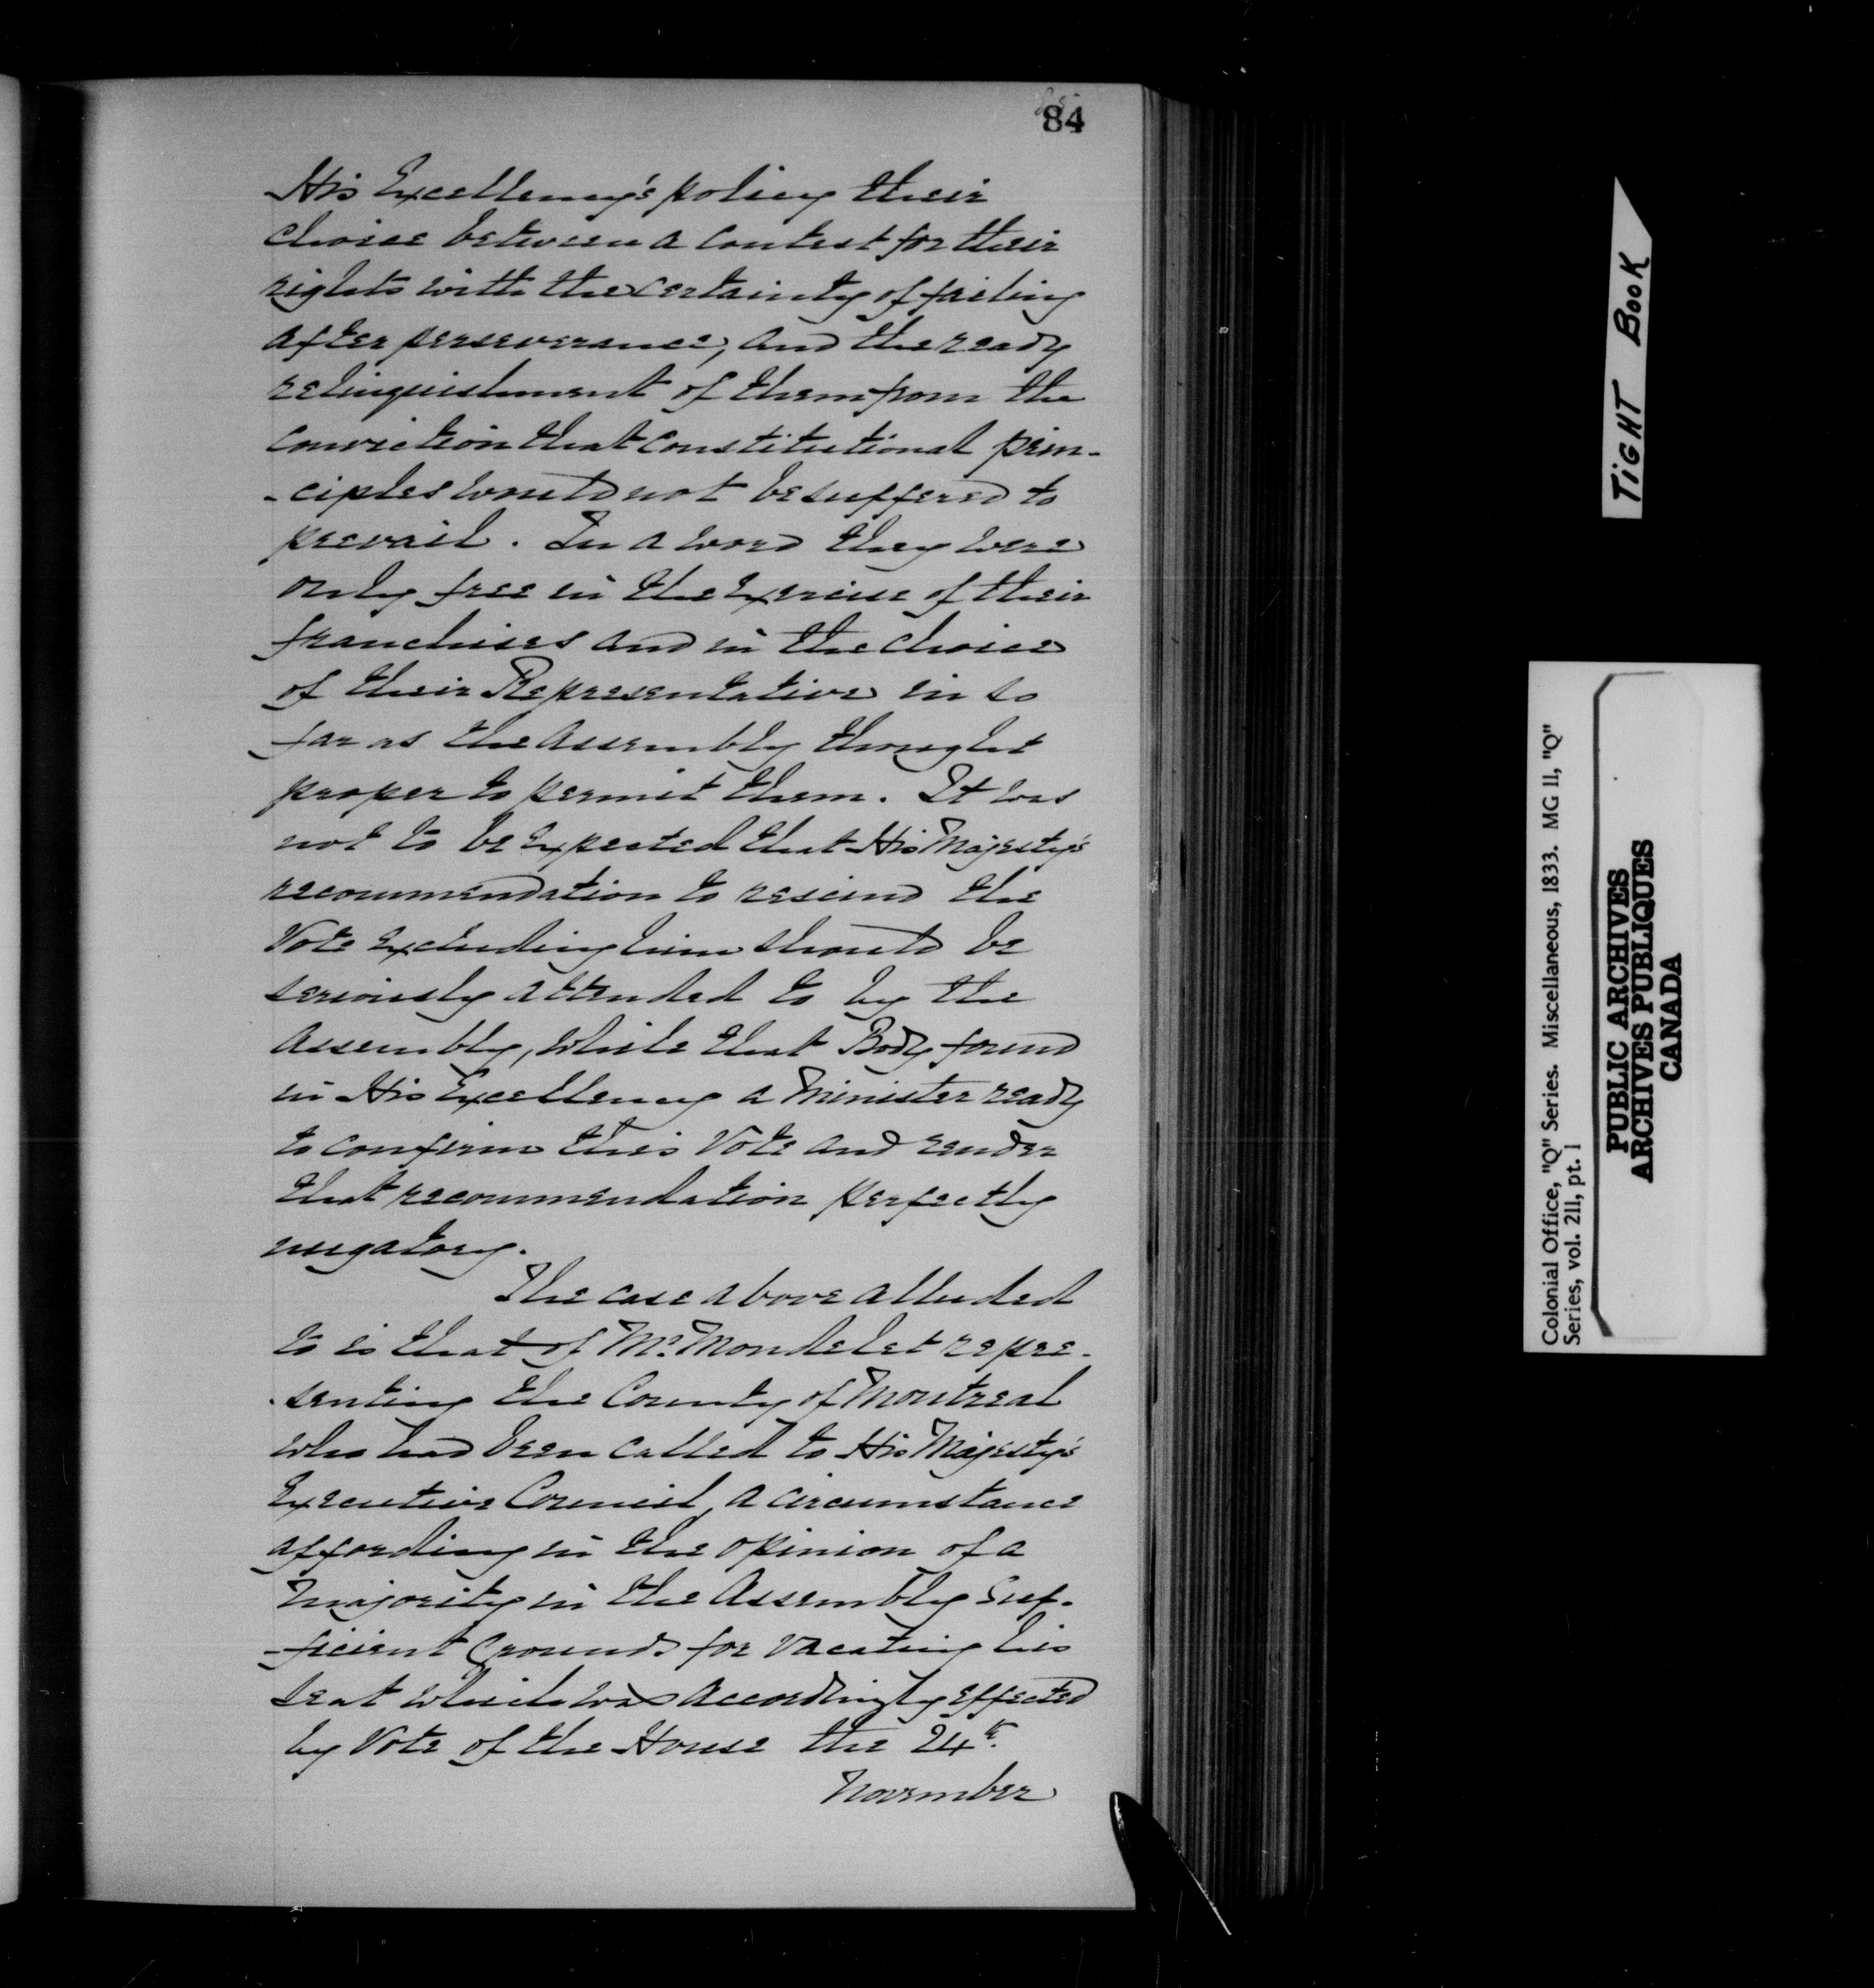 84
His Excellency's policy their
choice between a contest for their
rights with the certainty of failing
after perseverance, and the ready
relinquishment of them from the
conviction that constitutional prin-
-ciples would not be suffered to
prevail. In a word they were
only free in the exercise of their
franchises and in the choice
of their Representative in so
far as the Assembly thought
proper to permit them. It was
not to be expected that His Majesty's
recommendation to rescind the
Vote excluding him should be
seriously attended to by the
Assembly, while that Body found
in His Excellency a Minister ready
to confirm this Vote and render
that recommendation perfectly
nugatory.
The case above alluded
to is that of Mr. Mondelet repre-
-senting the County of Montreal
who had been called to His Majesty's
Executive Council, a circumstance
affording in the opinion of a
majority in the Assembly suf-
-ficient grounds for vacating his
seat which was accordingly effected
by Vote of the House the 24th.
November
TIGHT BOOK
Colonial Office, "Q" Series. Miscellaneous, 1833. MG 11, "Q"
Series, vol. 211, pt. 1
PUBLIC ARCHIVES
ARCHIVES PUBLIQUES
CANADA